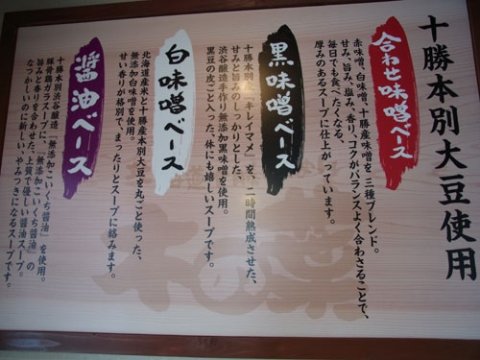 十勝本別大豆使用
合わせ味噌ベース
赤味噌、白味噌、十勝産味噌を三種ブレンド。
甘み、旨み、塩み、香り、コクがバランスよく合わさることで、
毎日でも食べたくなる、
厚みのあるスープに仕上がっています。
黒味噌ベース
十勝本別産「キレイマメ」を、二時間熟成させた、
甘みと旨みのしっかりとした、
渋谷醸造手作り無添加黒味噌を使用。
黒豆の粒ごと入った、体にも嬉しいスープです。
白味噌ベース
北海道産米と十勝産本別大豆を丸ごと使った、
無添加白味噌を使用。
甘い香りが格別で、まったりとスープに絡みます。
醤油ベース
十勝本別渋谷醸造「無添加こいくち醤油」を使用。
豚骨鶏ガラスープと「無添加こいくち醤油」の
旨みと香りを合わせた、上質で優しい醤油スープ。
なつかしいのに新しい、やみつきになるスープです。